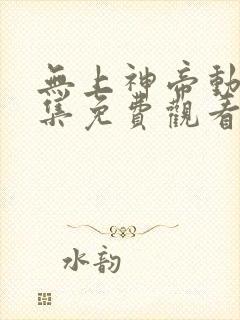 無上神帝動
集免費觀看
水韵